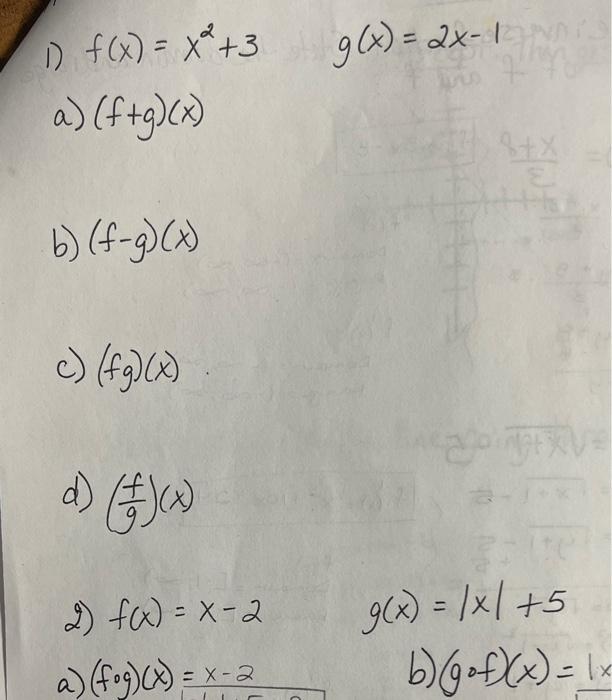 1) f(x) = x² + 3 g(x) = 2x - 1
a) (f+g)(x)
b) (f-g)(x)
c) (fg)(x)
d) (f/g)(x)
2) f(x) = x - 2 g(x) = |x| + 5
a) (f∘g)(x) = x - 2 b) (g∘f)(x) = |x